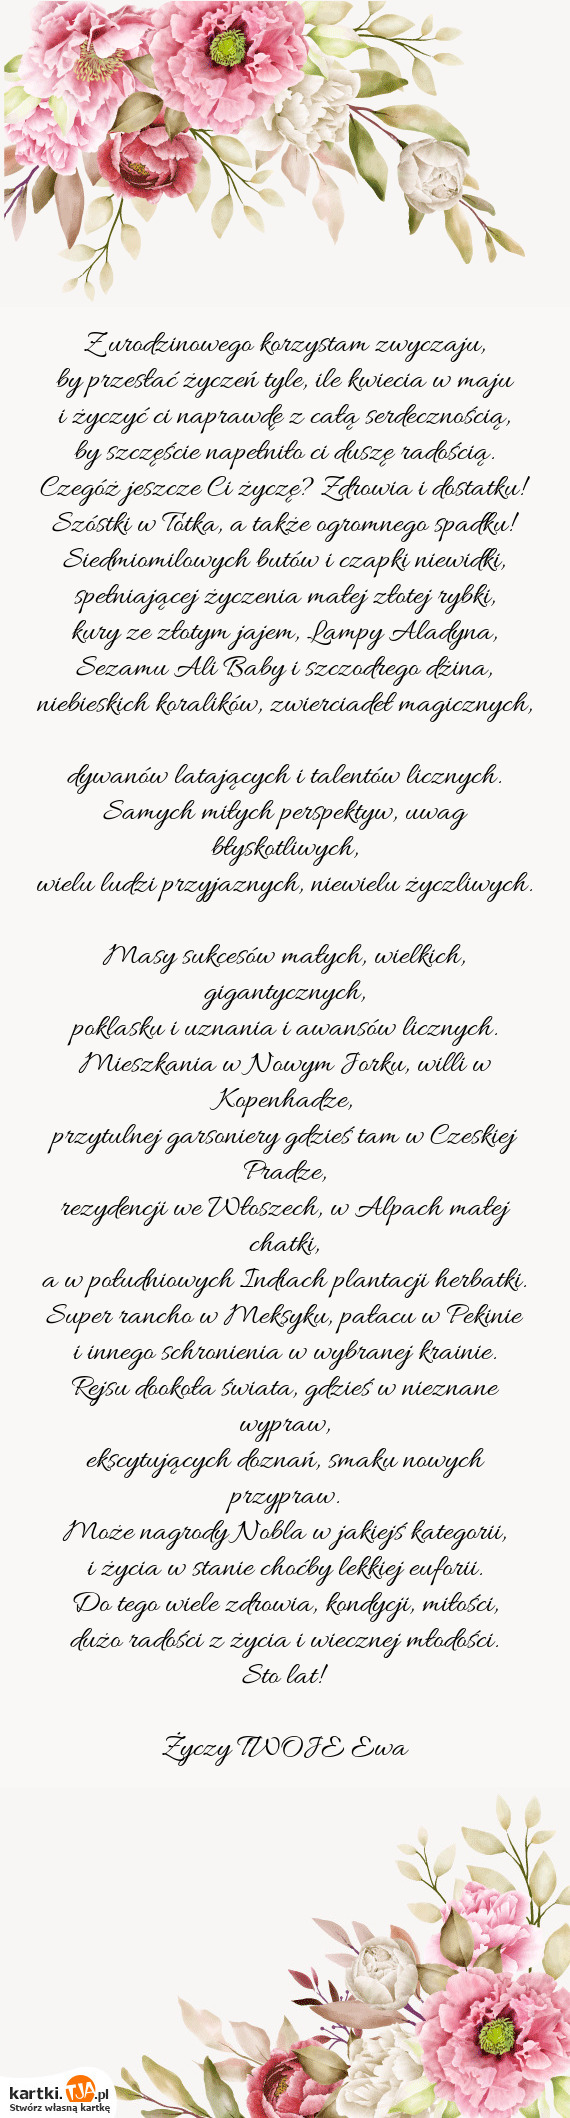 Z urodzinowego korzystam zwyczaju,
by przesłać życzeń tyle, ile kwiecia w maju
i życzyć ci naprawdę z całą serdecznością,
by szczęście napełniło ci duszę radością.
Czegóż jeszcze Ci życzę? Zdrowia i dostatku!
Szóstki w Totka, a także ogromnego spadku!
Siedmiomilowych butów i czapki niewidki,
spełniającej życzenia małej złotej rybki,
kury ze złotym jajem, Lampy Aladyna,
Sezamu Ali Baby i szczodrego dżina,
niebieskich koralików, zwierciadeł magicznych,
dywanów latających i talentów licznych.
Samych miłych perspektyw, uwag
błyskotliwych,
wielu ludzi przyjaznych, niewielu życzliwych.
Masy sukcesów małych, wielkich,
gigantycznych,
poklasku i uznania i awansów licznych.
Mieszkania w Nowym Jorku, willi w
Kopenhadze,
przytulnej garsoniery gdzieś tam w Czeskiej
Pradze,
rezydencji we Włoszech, w Alpach małej
chatki,
a w południowych Indiach plantacji herbatki.
Super rancho w Meksyku, pałacu w Pekinie
i innego schronienia w wybranej krainie.
Rejsu dookoła świata, gdzieś w nieznane
wypraw,
ekscytujących doznań, smaku nowych
przypraw.
Może nagrody Nobla w jakiejś kategorii,
i życia w stanie choćby lekkiej euforii.
Do tego wiele zdrowia, kondycji, miłości,
dużo radości z życia i wiecznej młodości.
Sto lat!
Życzy TWOJE Ewa
kartki.TJA.pl
Stwórz własną kartkę